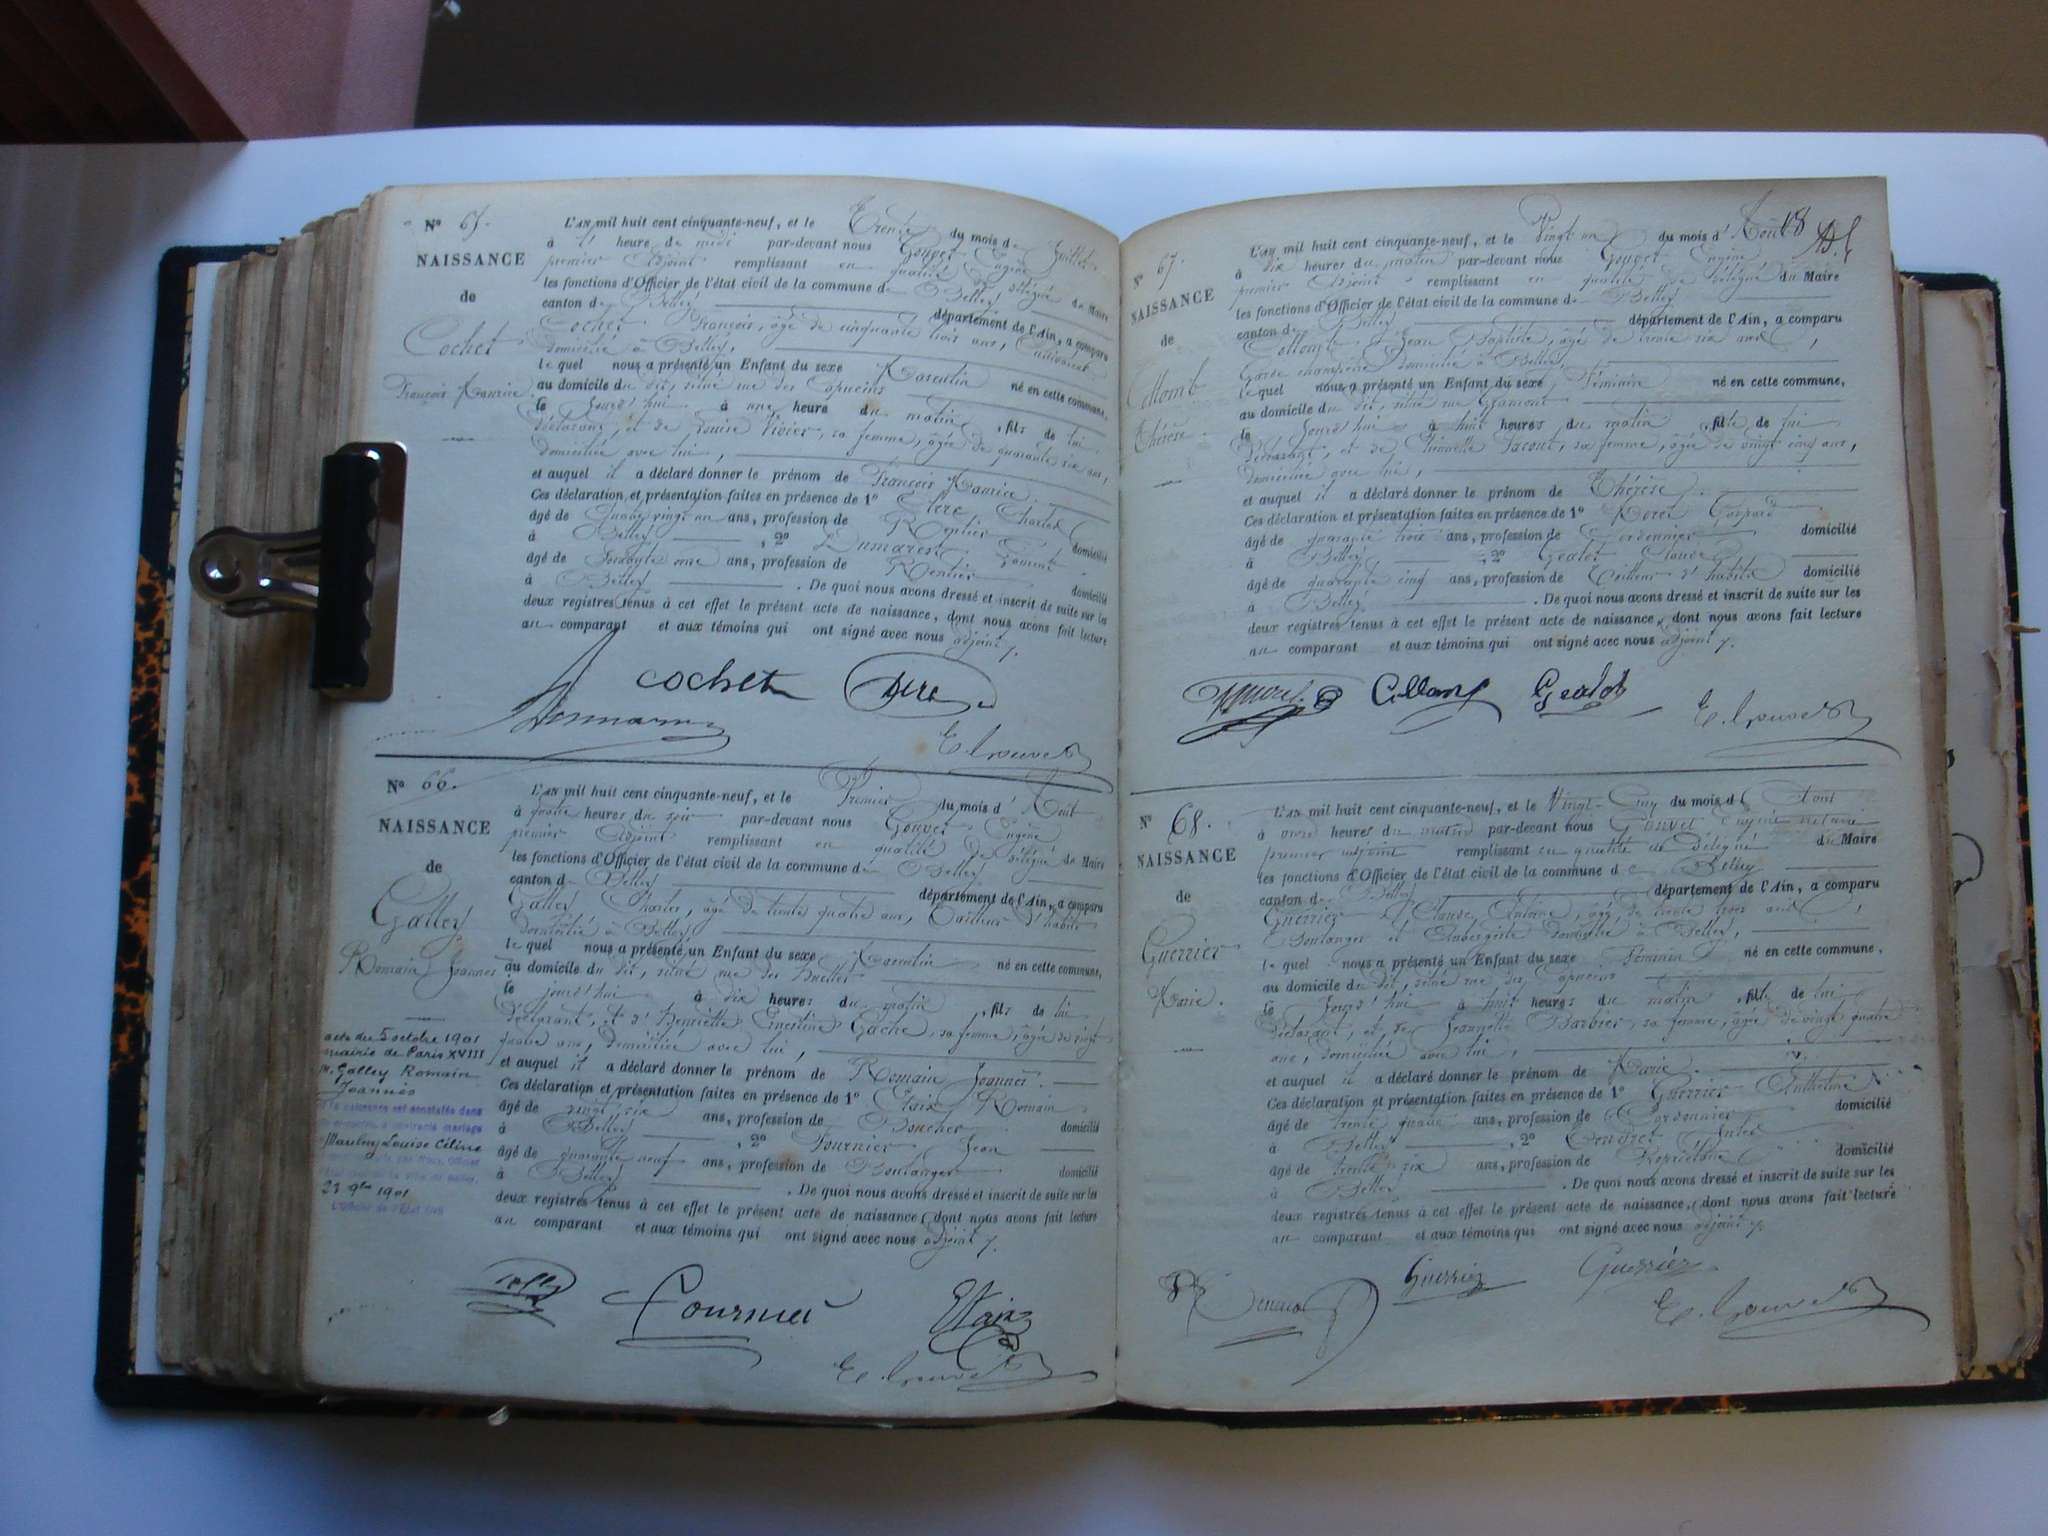 Nº 65.
NAISSANCE
de
Cochet
François Maurice
L'AN mil huit cent cinquante-neuf, et le Trente du mois de Juillet
à l' heure de midi par-devant nous Gouvet Eugène
premier Adjoint remplissant en qualité de délégué du Maire
les fonctions d'Officier de l'état civil de la commune de Belley
canton de Belley département de l'Ain, a comparu
Cochet François, âgé de cinquante trois ans, Cultivateur
domicilié à Belley,
lequel nous a présenté un Enfant du sexe Masculin né en cette commune,
au domicile du dit, situé rue des Capucins
le jourd'hui à une heure du matin, fils de lui
déclarant, et de Louise Vivier, sa femme, âgée de quarante six ans,
domiciliée avec lui,
et auquel il a déclaré donner le prénom de François Maurice.
Ces déclaration et présentation faites en présence de 1º Clerc Charles
âgé de quatre vingt un ans, profession de Rentier domicilié
à Belley, 2º
âgé de soixante onze ans, profession de Rentier domicilié
à Belley. De quoi nous avons dressé et inscrit de suite sur les
deux registres tenus à cet effet le présent acte de naissance, dont nous avons fait lecture
au comparant et aux témoins qui ont signé avec nous adjoint
cochet
E. Gouvet
Nº 66.
NAISSANCE
de
Galley
Romain Joannès
acte du 5 octobre 1901
mairie de Paris XVIII
M. Galley Romain
Joannès
Louise Céline
23 9bre 1901
L'Officier de l'Etat civil
L'AN mil huit cent cinquante-neuf, et le Premier du mois d'Août
à quatre heures du soir par-devant nous Gouvet Eugène
premier Adjoint remplissant en qualité de délégué du Maire
les fonctions d'Officier de l'état civil de la commune de Belley
canton de Belley département de l'Ain, a comparu
Galley Charles, âgé de trente quatre ans, Tailleur d'habits
domicilié à Belley,
lequel nous a présenté un Enfant du sexe Masculin né en cette commune,
au domicile du dit, situé rue des
le jourd'hui à dix heures du matin, fils de lui
déclarant, et d'Henriette Ernestine Gache, sa femme, âgée de vingt
quatre ans, domiciliée avec lui,
et auquel il a déclaré donner le prénom de Romain Joannès.
Ces déclaration et présentation faites en présence de 1º Romain
âgé de vingt six ans, profession de Boucher domicilié
à Belley, 2º Fournier Jean
âgé de quarante neuf ans, profession de Boulanger domicilié
à Belley. De quoi nous avons dressé et inscrit de suite sur les
deux registres tenus à cet effet le présent acte de naissance, dont nous avons fait lecture
au comparant et aux témoins qui ont signé avec nous adjoint
Fournier
E. Gouvet
18
Nº 67.
NAISSANCE
de
Collomb
Thérèse
L'AN mil huit cent cinquante-neuf, et le Vingt un du mois d'Août
à dix heures du matin par-devant nous Gouvet Eugène
premier Adjoint remplissant en qualité de délégué du Maire
les fonctions d'Officier de l'état civil de la commune de Belley
canton de Belley département de l'Ain, a comparu
Collomb Jean Baptiste, âgé de trente six ans,
Garde champêtre domicilié à Belley,
lequel nous a présenté un Enfant du sexe féminin né en cette commune,
au domicile du dit, situé rue
le jourd'hui à huit heures du matin, fille de lui
déclarant, et de sa femme, âgée de vingt cinq ans,
domiciliée avec lui,
et auquel il a déclaré donner le prénom de Thérèse
Ces déclaration et présentation faites en présence de 1º Morel Gaspard
âgé de quarante trois ans, profession de Cordonnier domicilié
à Belley, 2º Gealot Claude
âgé de quarante cinq ans, profession de Tailleur d'habits domicilié
à Belley. De quoi nous avons dressé et inscrit de suite sur les
deux registres tenus à cet effet le présent acte de naissance, dont nous avons fait lecture
au comparant et aux témoins qui ont signé avec nous adjoint
Gealot
E. Gouvet
Nº 68.
NAISSANCE
de
Guerrier
Marie.
L'AN mil huit cent cinquante-neuf, et le Vingt-Cinq du mois d'Août
à onze heures du matin par-devant nous Gouvet Eugène notaire
premier adjoint remplissant en qualité de Délégué du Maire
les fonctions d'Officier de l'état civil de la commune de Belley
canton de Belley département de l'Ain, a comparu
Guerrier Claude Antoine, âgé de trente trois ans,
Boulanger et Aubergiste domicilié à Belley,
lequel nous a présenté un Enfant du sexe féminin né en cette commune,
au domicile du dit, situé rue des Capucins
le jourd'hui à trois heures du matin, fille de lui
déclarant, et de Jeannette Barbier, sa femme, âgée de vingt quatre
ans, domiciliée avec lui,
et auquel il a déclaré donner le prénom de Marie.
Ces déclaration et présentation faites en présence de 1º Guerrier Anthelme
âgé de trente quatre ans, profession de Cordonnier domicilié
à Belley, 2º
âgé de trente six ans, profession de Propriétaire domicilié
à Belley. De quoi nous avons dressé et inscrit de suite sur les
deux registres tenus à cet effet le présent acte de naissance, dont nous avons fait lecture
au comparant et aux témoins qui ont signé avec nous adjoint
Guerrier
Guerrier
E. Gouvet